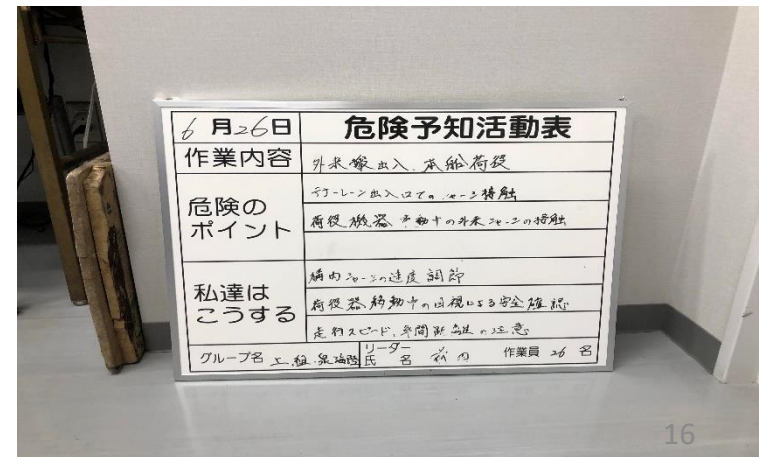 6月26日 危険予知活動表
作業内容 外来搬出入、本船荷役
危険の
ポイント
出入口での シャーシ接触
荷役機器 移動中の外来シャーシの接触
私達は
こうする
構内シャーシの速度調節
荷役器移動中の目視による安全確認
走行スピード、車間距離の注意
グループ名 上組 泉海陸 リーダー氏名 作業員 26 名
16